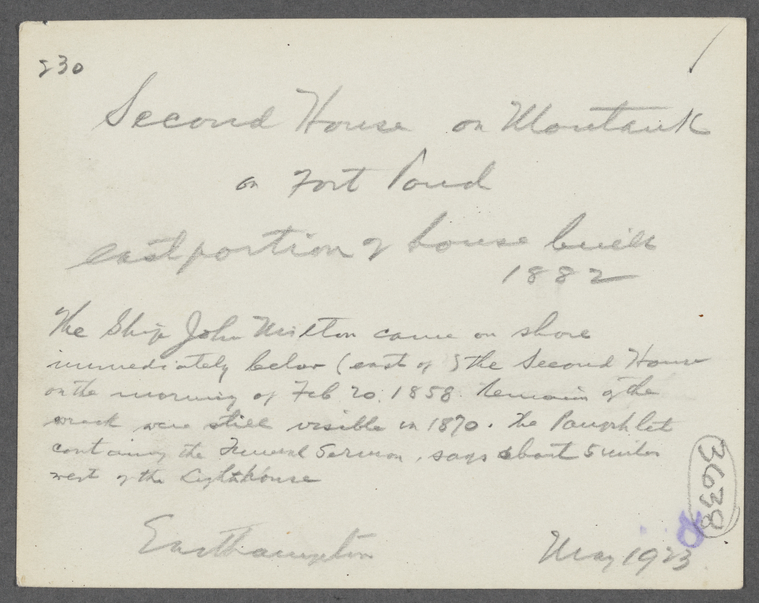 230
Second House on Montauk
on Fort Pond
east portion of house built
1882
The Ship John Milton came on shore
immediately below (east of) the Second House
on the morning of Feb 20, 1858. Remains of the
wreck were still visible in 1870. The Pamphlet
containing the Funeral Sermon, says about 5 miles
west of the Lighthouse
Easthampton
May 1923
3638